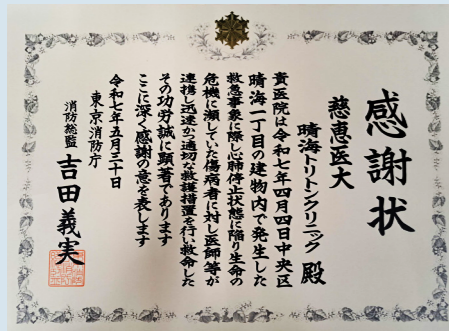 感謝状
慈恵医大
晴海トリトンクリニック 殿
貴医院は令和七年四月四日中央区
晴海一丁目の建物内で発生した
救急事象に際し心肺停止状態に陥り生命の
危機に瀕していた傷病者に対し医師等が
連携し迅速かつ適切な救護措置を行い救命した
その功労誠に顕著であります
ここに深く感謝の意を表します
令和七年五月三十日
東京消防庁
消防総監 吉田義実